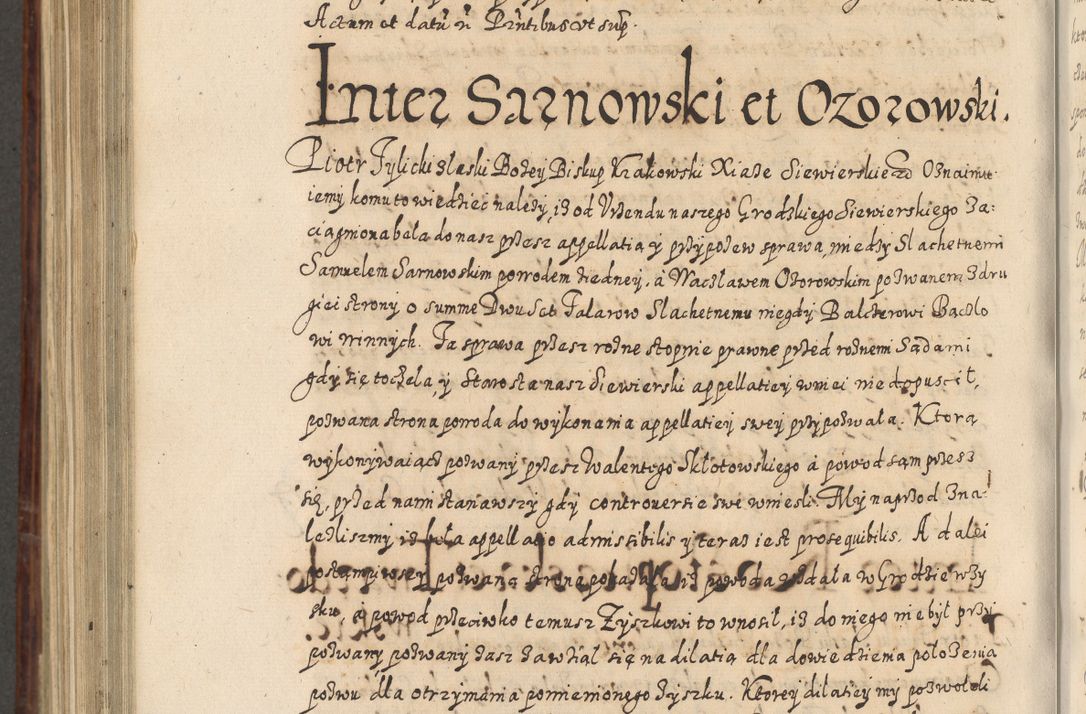 Actum et datu ũ Pũntibus ut sup.
Inter Sarnowski et Ozorowski.
Piotr Tylicki z laski Bozey Biskup Krakowski Xiaze Siewierskie Oznaimu
iemy komu to wiedziec nalezy, iz od Urzendu naszego Grodzkiego Siewierskiego za:
ciągniona beła do nasz przesz appellatią y przypozew sprawa, miedzy Slachetnemi
Samuelem Sarnowskim powodem z iedney, a Wacslawem Ozorowskim pozwanem z dru
giei strony o summe Dwu Set Talarow Slachetnemu niegdy Balcerowi Baczlo
wi winnych. Ta sprawa przesz rozne stopnie prawne przed roznemi Sądami
gdy się toczela, y Starosta nasz Siewierski appellatiey w niei nie dopuscił,
pozwana strona powoda do wykonania appellatiey swey przypozwała. Ktorą
wykonywaiącz pozwany przesz Walentego Skłotowskiego a powod sąm przesz
się, przed nami stanąwszy gdy controuersie swe wniesli. My naprzod zna
lezliszmy iz beła appellatio admissibilis y teraz iest prosequibilis. A dalei
postąmpiwszy pozwaną strona pokazała iz powoda wzdała w Grodzie w zy
sku, a powod przeciwko temusz Zyszkowi to wnosił, iz do niego nie był przy
pozwany pozwany zasz zawziął się na dilatią dla dowiedzienia położenia
pozwu dla otrzymania pomienionego zyszku. Ktorey dilatiey my pozwoleli